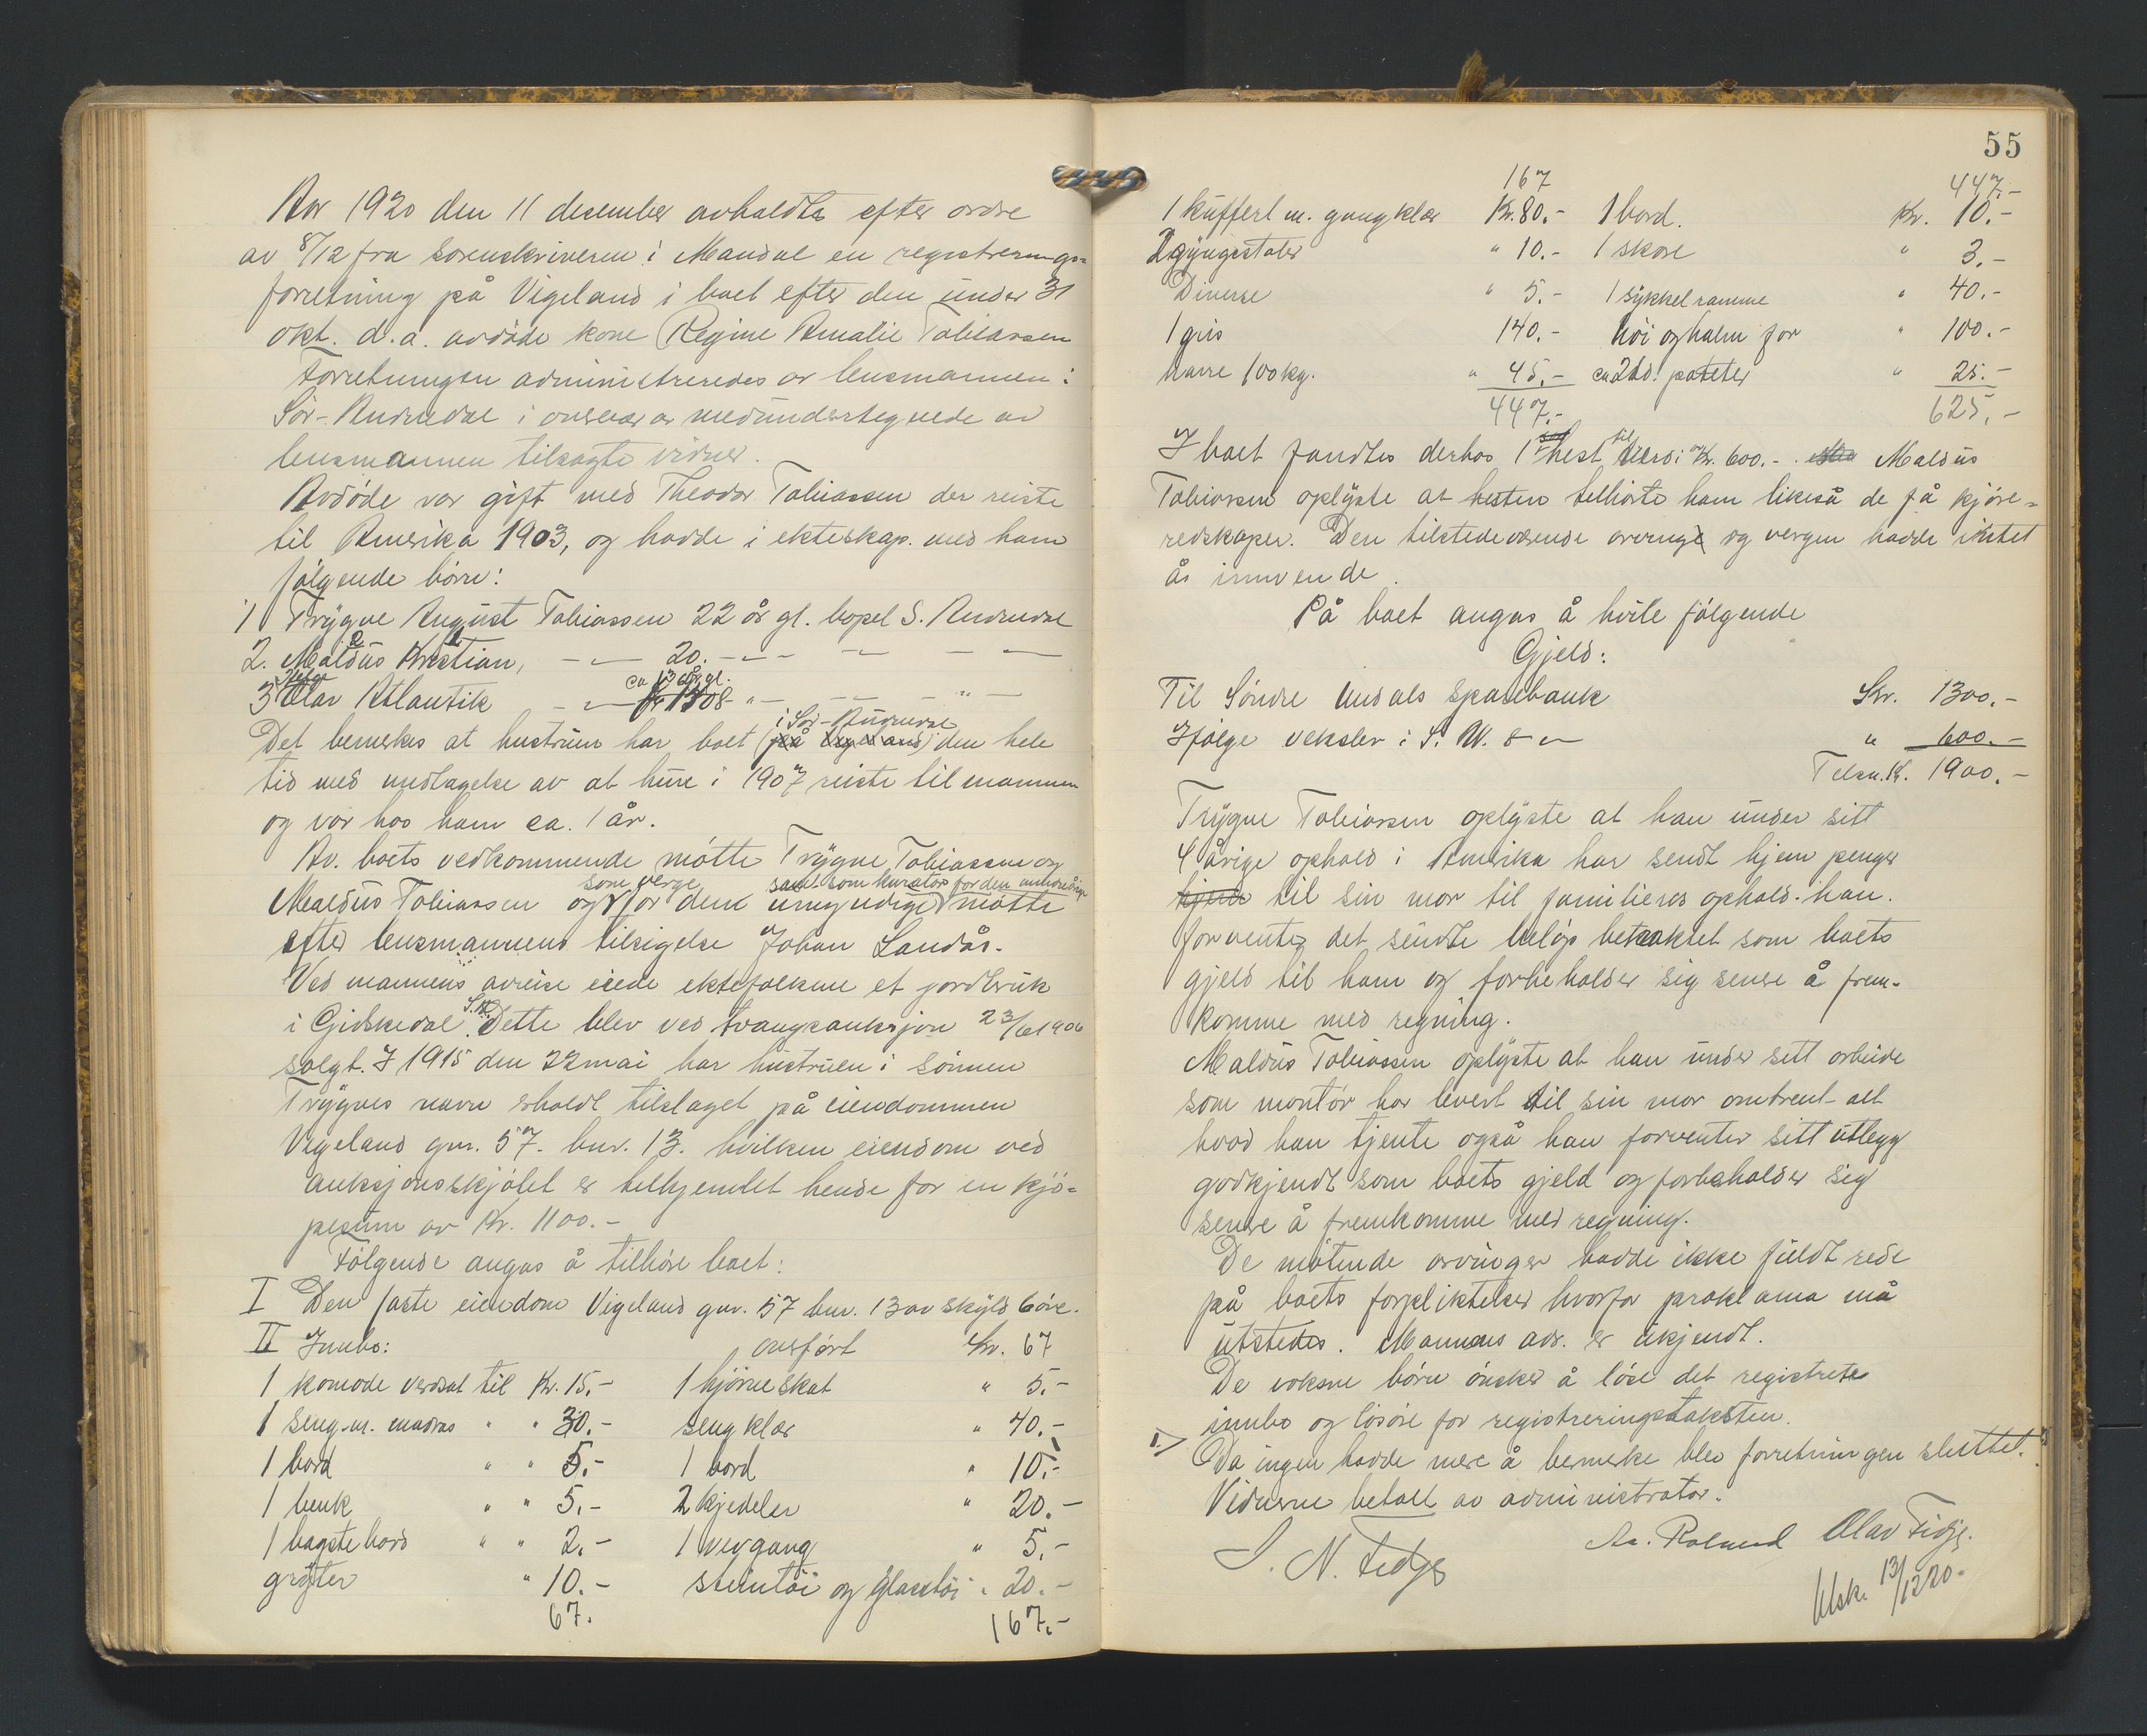 Aar 1920 den 11 desember avholdtes efter ordre
av 8/12 fra sorenskriveren i Mandal en registrerings-
forretning på Vigeland i boet efter den under 31
okt. d.a. avdöde kone Regine Amalie Tobiassen
Forretningen administreredes av lensmannen i
Sör-Audnedal i overvær av medundertegnede av
lensmannen tilsagte vidner.
Avdöde var gift med Theodor Tobiassen der reiste
til Amerika 1903, og hadde i ekteskap. med ham
fölgende börn:
1 Trygve August Tobiassen 22 år gl. bopel S. Audnedal
2. Maldus Kristian, 20.
3 Olav Atlantik ca 13 år gl. 1908
i Sör-Audnedal
Det bemerkes at hustruen har boet (på Vigeland) den hele
tid med undtagelse av at hun i 1907 reiste til mannen
og var hos ham ca. 1 år.
Av. boets vedkommende mötte Trygve Tobiassen og
som verge samt som kurator for den mindreårige
Maldus Tobiassen og for den umyndige mötte
efter lensmannens tilsigelse Johan Landås.
Ved mannens avreise eiede ektefolkene et jordbruk
i Gidskedal S.A. Dette blev ved tvangsauksjon 23/6 1906
solgt. I 1915 den 22 mai har hustruen i sönnen
Trygves navn erholdt tilslaget på eiendommen
Vigeland gnr. 57. bnr. 13. hvilken eiendom ved
auksjonsskjötet er tilhjemlet hende for en kjö-
pesum av Kr. 1100.-
Fölgende angas å tilhöre boet:
I Den faste eiendom Vigeland gnr. 57 bnr. 13 av skyld 6 öre.
II Innbo: overfört Kr. 67
1 komode verdsat til Kr. 15.- 1 hjörneskat " 5.-
1 seng m. madras " " 30.- sengklær " 40.-
1 bord " " 5.- 1 bord " 10.-
1 benk " " 5.- 2 kjedeler " 20.-
1 bagstebord " " 2.- 1 veggang " 5.-
gryter " 10.- stentöi og glasstöi " 20.-
67. 167.-
55
167 447.-
1 kuffert m. gangklær Kr. 80.- 1 bord. Kr. 10.-
2 gyngestoler " 10.- 1 skore " 3.-
Diverse " 5.- 1 sykkelramme " 40.-
1 gris 140.- höi og halm for " 100.-
havre 100 kg. " 45.- ca 2 td. poteter " 25.-
447.- 625.-
I boet fandtes derhos 1 hest til verdi Kr. 600.- Maldus
Tobiassen oplyste at hesten tilhörte ham likeså de få kjöre-
redskaper. Den tilstedeværende arving og vergen hadde intet
å innvende.
På boet angas å hvile fölgende
Gjeld:
Til Söndre Undals Sparebank Kr. 1300.-
Ifölge veksler i S. U. " 600.-
Tilsm. Kr. 1900.-
Trygve Tobiassen oplyste at han under sitt
4 årige ophold i Amerika har sendt hjem penger
hjem til sin mor til familiens ophold. han
forventer det sendte belöp betraktet som boets
gjeld til ham og forbeholder sig senere å frem-
komme med regning.
Maldus Tobiassen oplyste at han under sitt arbeide
som montör har levert til sin mor omtrent alt
hvad han tjente også han forventer sitt utlegg
godkjendt som boets gjeld og forbeholder sig
senere å fremkomme med regning.
De mötende arvinger hadde ikke fuldt rede
på boets forpliktelser hvorfor proklama må
utstedes. Mannens adr. er ukjendt.
De voksne börn önsker å löse det registrerte
innbo og lösöre for registreringstaksten.
Da ingen hadde mere å bemerke blev forretningen sluttet.
Vidnerne betalt av administrator.
S. N. Fidje Olav Fidje.
Utsk. 13/12 20.